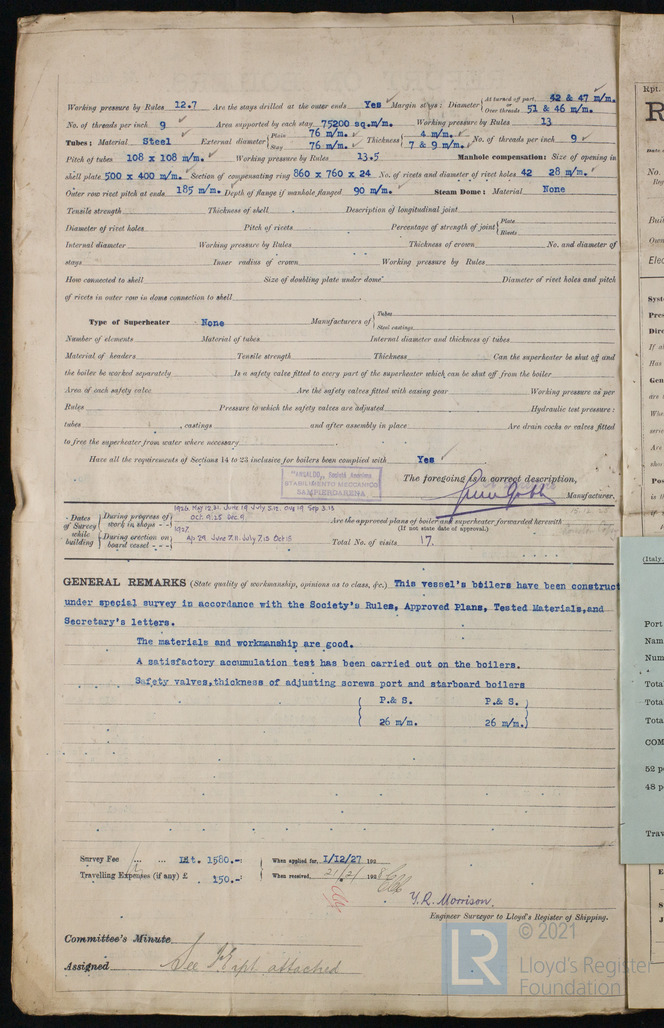 Working pressure by Rules 12.7 Are the stays drilled at the outer ends Yes Margin stays: Diameter At turned off part, or Over threads 42 & 47 m/m. 51 & 46 m/m.
No. of threads per inch 9 Area supported by each stay 75200 sq.m/m. Working pressure by Rules 13
Tubes: Material Steel External diameter Plain 76 m/m. Stay 76 m/m. Thickness 4 m/m. 7 & 9 m/m. No. of threads per inch 9
Pitch of tubes 108 x 108 m/m. Working pressure by Rules 13.5 Manhole compensation: Size of opening in
shell plate 500 x 400 m/m. Section of compensating ring 860 x 760 x 24 No. of rivets and diameter of rivet holes 42 28 m/m.
Outer row rivet pitch at ends 185 m/m. Depth of flange if manhole flanged 90 m/m. Steam Dome: Material None
Tensile strength Thickness of shell Description of longitudinal joint
Diameter of rivet holes Pitch of rivets Percentage of strength of joint Plate Rivets
Internal diameter Working pressure by Rules Thickness of crown No. and diameter of
stays Inner radius of crown Working pressure by Rules
How connected to shell Size of doubling plate under dome Diameter of rivet holes and pitch
of rivets in outer row in dome connection to shell
Type of Superheater None Manufacturers of Tubes Steel castings
Number of elements Material of tubes Internal diameter and thickness of tubes
Material of headers Tensile strength Thickness Can the superheater be shut off and
the boiler be worked separately Is a safety valve fitted to every part of the superheater which can be shut off from the boiler
Area of each safety valve Are the safety valves fitted with easing gear Working pressure as per
Rules Pressure to which the safety valves are adjusted Hydraulic test pressure:
tubes , castings and after assembly in place Are drain cocks or valves fitted
to free the superheater from water where necessary
Have all the requirements of Sections 14 to 23 inclusive for boilers been complied with Yes
"ANSALDO" Società Anonima
STABILIMENTO MECCANICO
SAMPIERDARENA
The foregoing is a correct description,
Manufacturer.
Dates of Survey while building
During progress of work in shops - - 1926 May 12.21. June 19 July 5.12. Aug 19 Sep 3.13 Oct. 9.25 Dec 9.
During erection on board vessel - - - 1927. Apl 29. June 7.11. July 7.13 Oct 15
Are the approved plans of boiler and superheater forwarded herewith
(If not state date of approval.)
Total No. of visits 17.
GENERAL REMARKS (State quality of workmanship, opinions as to class, &c.) This vessel's boilers have been construct
under special survey in accordance with the Society's Rules, Approved Plans, Tested Materials,and
Secretary's letters.
The materials and workmanship are good.
A satisfactory accumulation test has been carried out on the boilers.
Safety valves,thickness of adjusting screws port and starboard boilers
P.& S. P.& S.
26 m/m. 26 m/m.
Survey Fee ... ... Lit. 1580.-: When applied for, 1/12/27 192
Travelling Expenses (if any) £ 150.-: When received, 21/2/ 1928
Y.R. Morrison.
Engineer Surveyor to Lloyd's Register of Shipping.
Committee's Minute
Assigned See attached
© 2021
LR
Lloyd's Register
Foundation
Rpt.
R
No.
Elec
(Italy.
Port
Nam
Num
Total
Total
Tota
COM
52 p
48 p
Trav